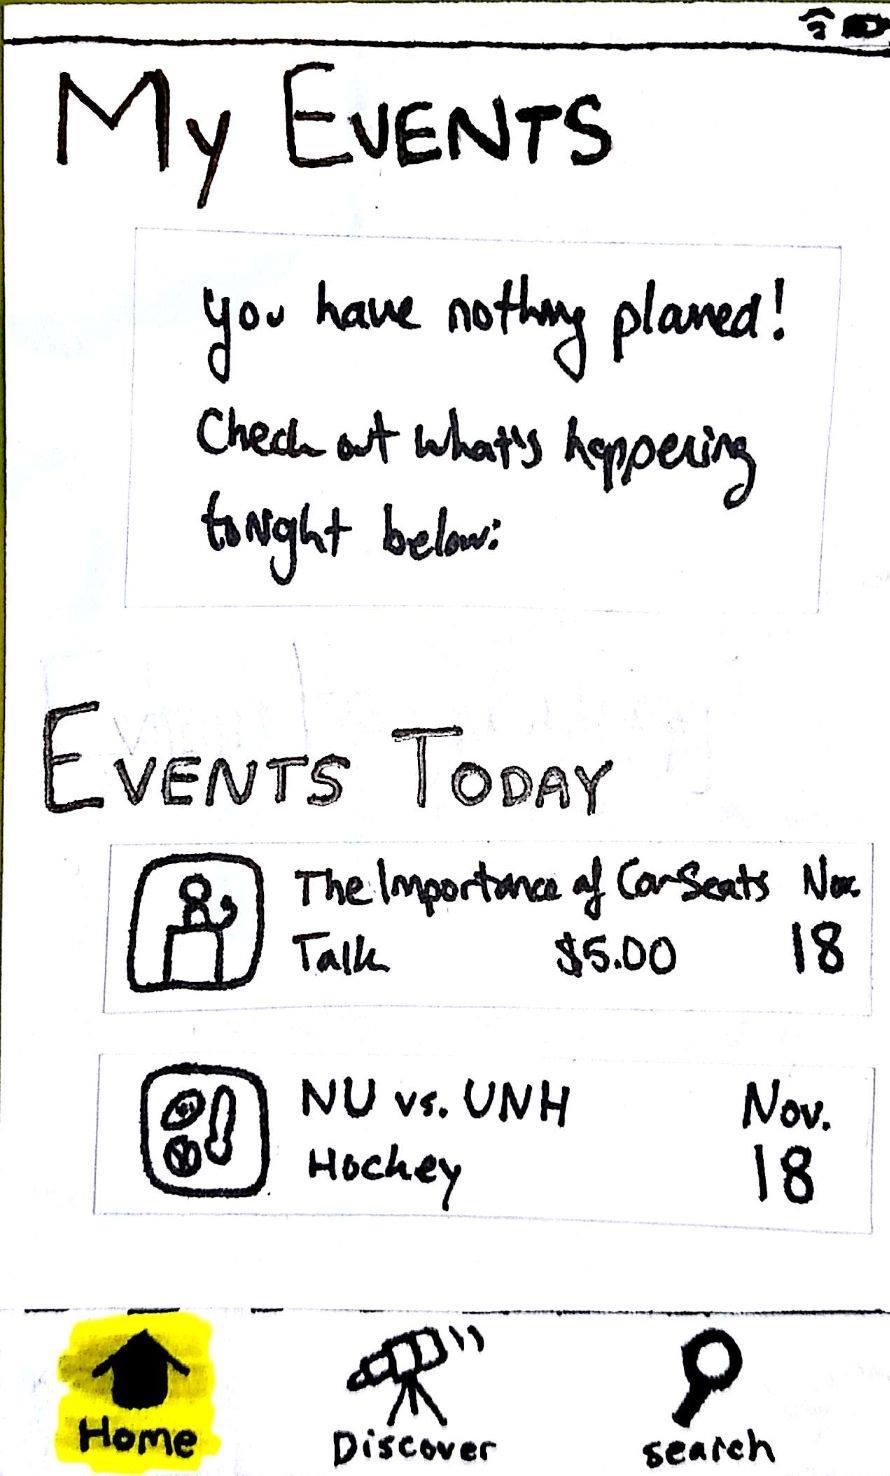 My EVENTS
you have nothing planned!
Check out what's happening
tonight below:
EVENTS TODAY
The Importance of Car Seats Nov.
Talk $5.00 18
NU vs. UNH Nov.
Hockey 18
Home Discover search